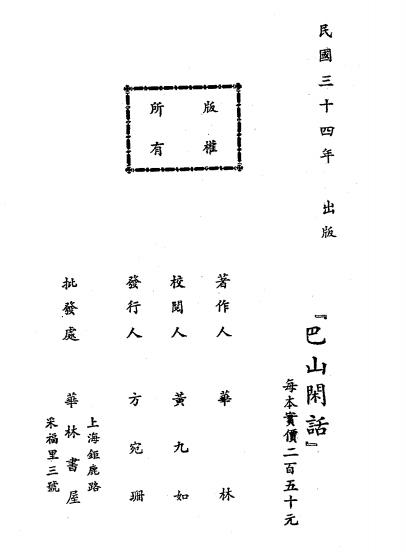 民國三十四年 出版
『巴山閑話』
每本實價二百五十元
版權
所有
著作人 華林
校閱人 黃九如
發行人 方宛珊
批發處 華林書屋
上海鉅鹿路
采福里三號